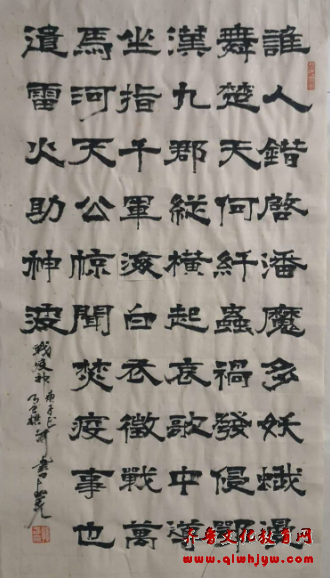 誰人錯啓潘魔多妖蛾漫
舞楚天何纤蟲禍發侵鄂
漢九郡縱橫起哀歌中導
坐指千軍滚白衣徵戰萬
馬河天公惊聞焚疫事也
遣雷火助神波
战疫神 庚子正
齐鲁文化教育网
www.qlwhjyw.com